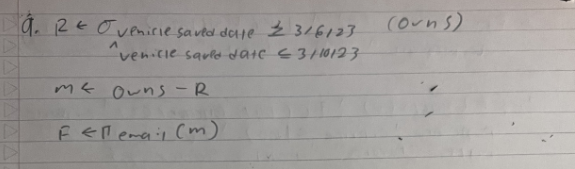 9. R ← σ vehicle saved date ≥ 3/6/23 (owns)
^ vehicle saved date ≤ 3/10/23
m ← owns - R
F ← π email (m)